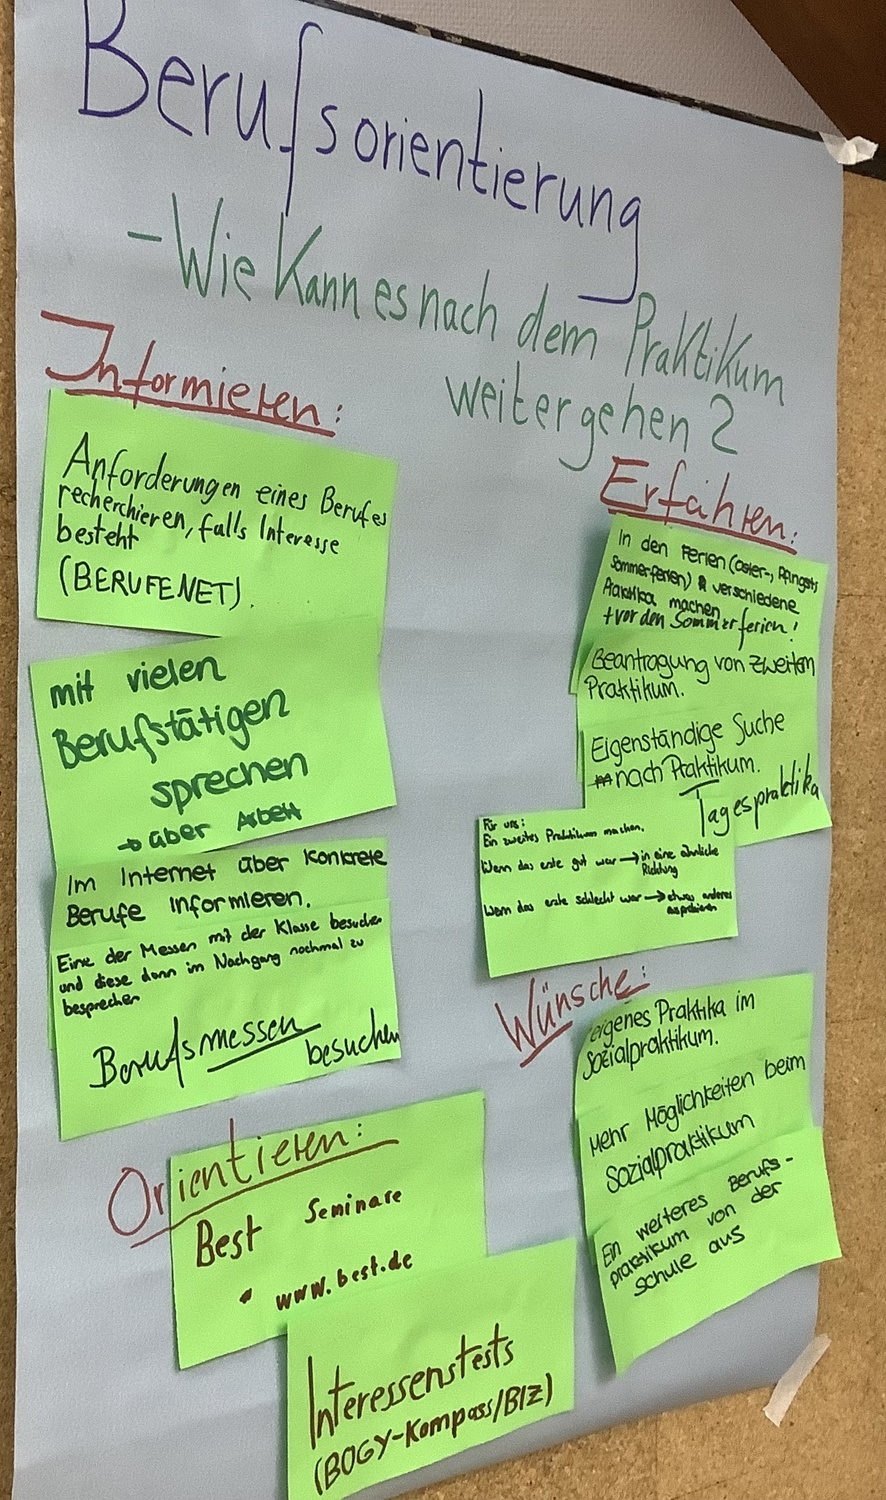 Berufsorientierung
- Wie kann es nach dem Praktikum
weitergehen?
Informieren:
Anforderungen eines Berufes
recherchieren, falls Interesse
besteht
(BERUFENET).
mit vielen
Berufstätigen
sprechen
→ über Arbeit
Im Internet über konkrete
Berufe informieren.
Eine der Messen mit der Klasse besuchen
und diese dann im Nachgang nochmal zu
besprechen
Berufsmessen
besuchen
Orientieren:
Best Seminare
• www.best.de
Interessenstests
(BOGY-Kompass/BIZ)
Erfahren:
In den Ferien (Oster-, Pfingst-,
Sommerferien) verschiedene
Praktika machen
+ vor den Sommerferien!
Beantragung von zweitem
Praktikum.
Eigenständige Suche
nach Praktikum.
Tagespraktika
Für uns:
Ein zweites Praktikum machen.
Wenn das erste gut war → in eine ähnliche
Richtung
Wenn das erste schlecht war → etwas anderes
ausprobieren
Wünsche:
eigenes Praktika im
Sozialpraktikum.
Mehr Möglichkeiten beim
Sozialpraktikum
Ein weiteres Berufs-
praktikum von der
Schule aus